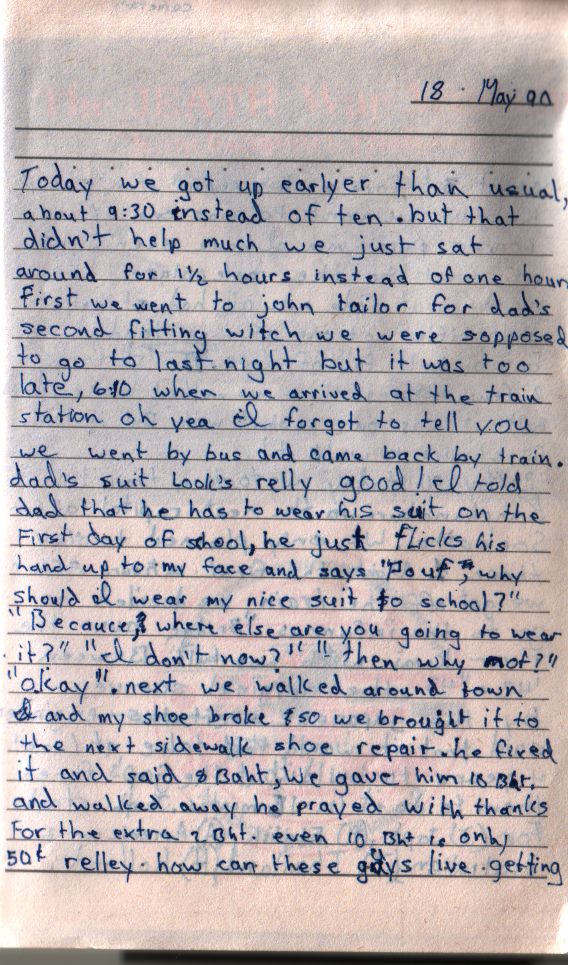 18 · May 90
Today we got up earlyer than usual,
about 9:30 instead of ten. but that
didn't help much we just sat
around for 1½ hours instead of one hour
First we went to john tailor for dad's
second fitting witch we were sopposed
to go to last night but it was too
late, 6:10 when we arrived at the train
station oh yea I forgot to tell you
we went by bus and came back by train.
dad's suit Look's relly good! I told
dad that he has to wear his suit on the
First day of school, he just flicks his
hand up to my face and says "Pouf", why
should I wear my nice suit to school?"
"Becauce, where else are you going to wear
it?" "I don't now?" "then why not?"
"okay". next we walked around town
and my shoe broke so we brought it to
the next sidewalk shoe repair. he fixed
it and said 8 Baht, we gave him 10 Bht.
and walked away he prayed with thanks
For the extra 2 Bht. even 10 Bht is only
50¢ relley. how can these guys live getting